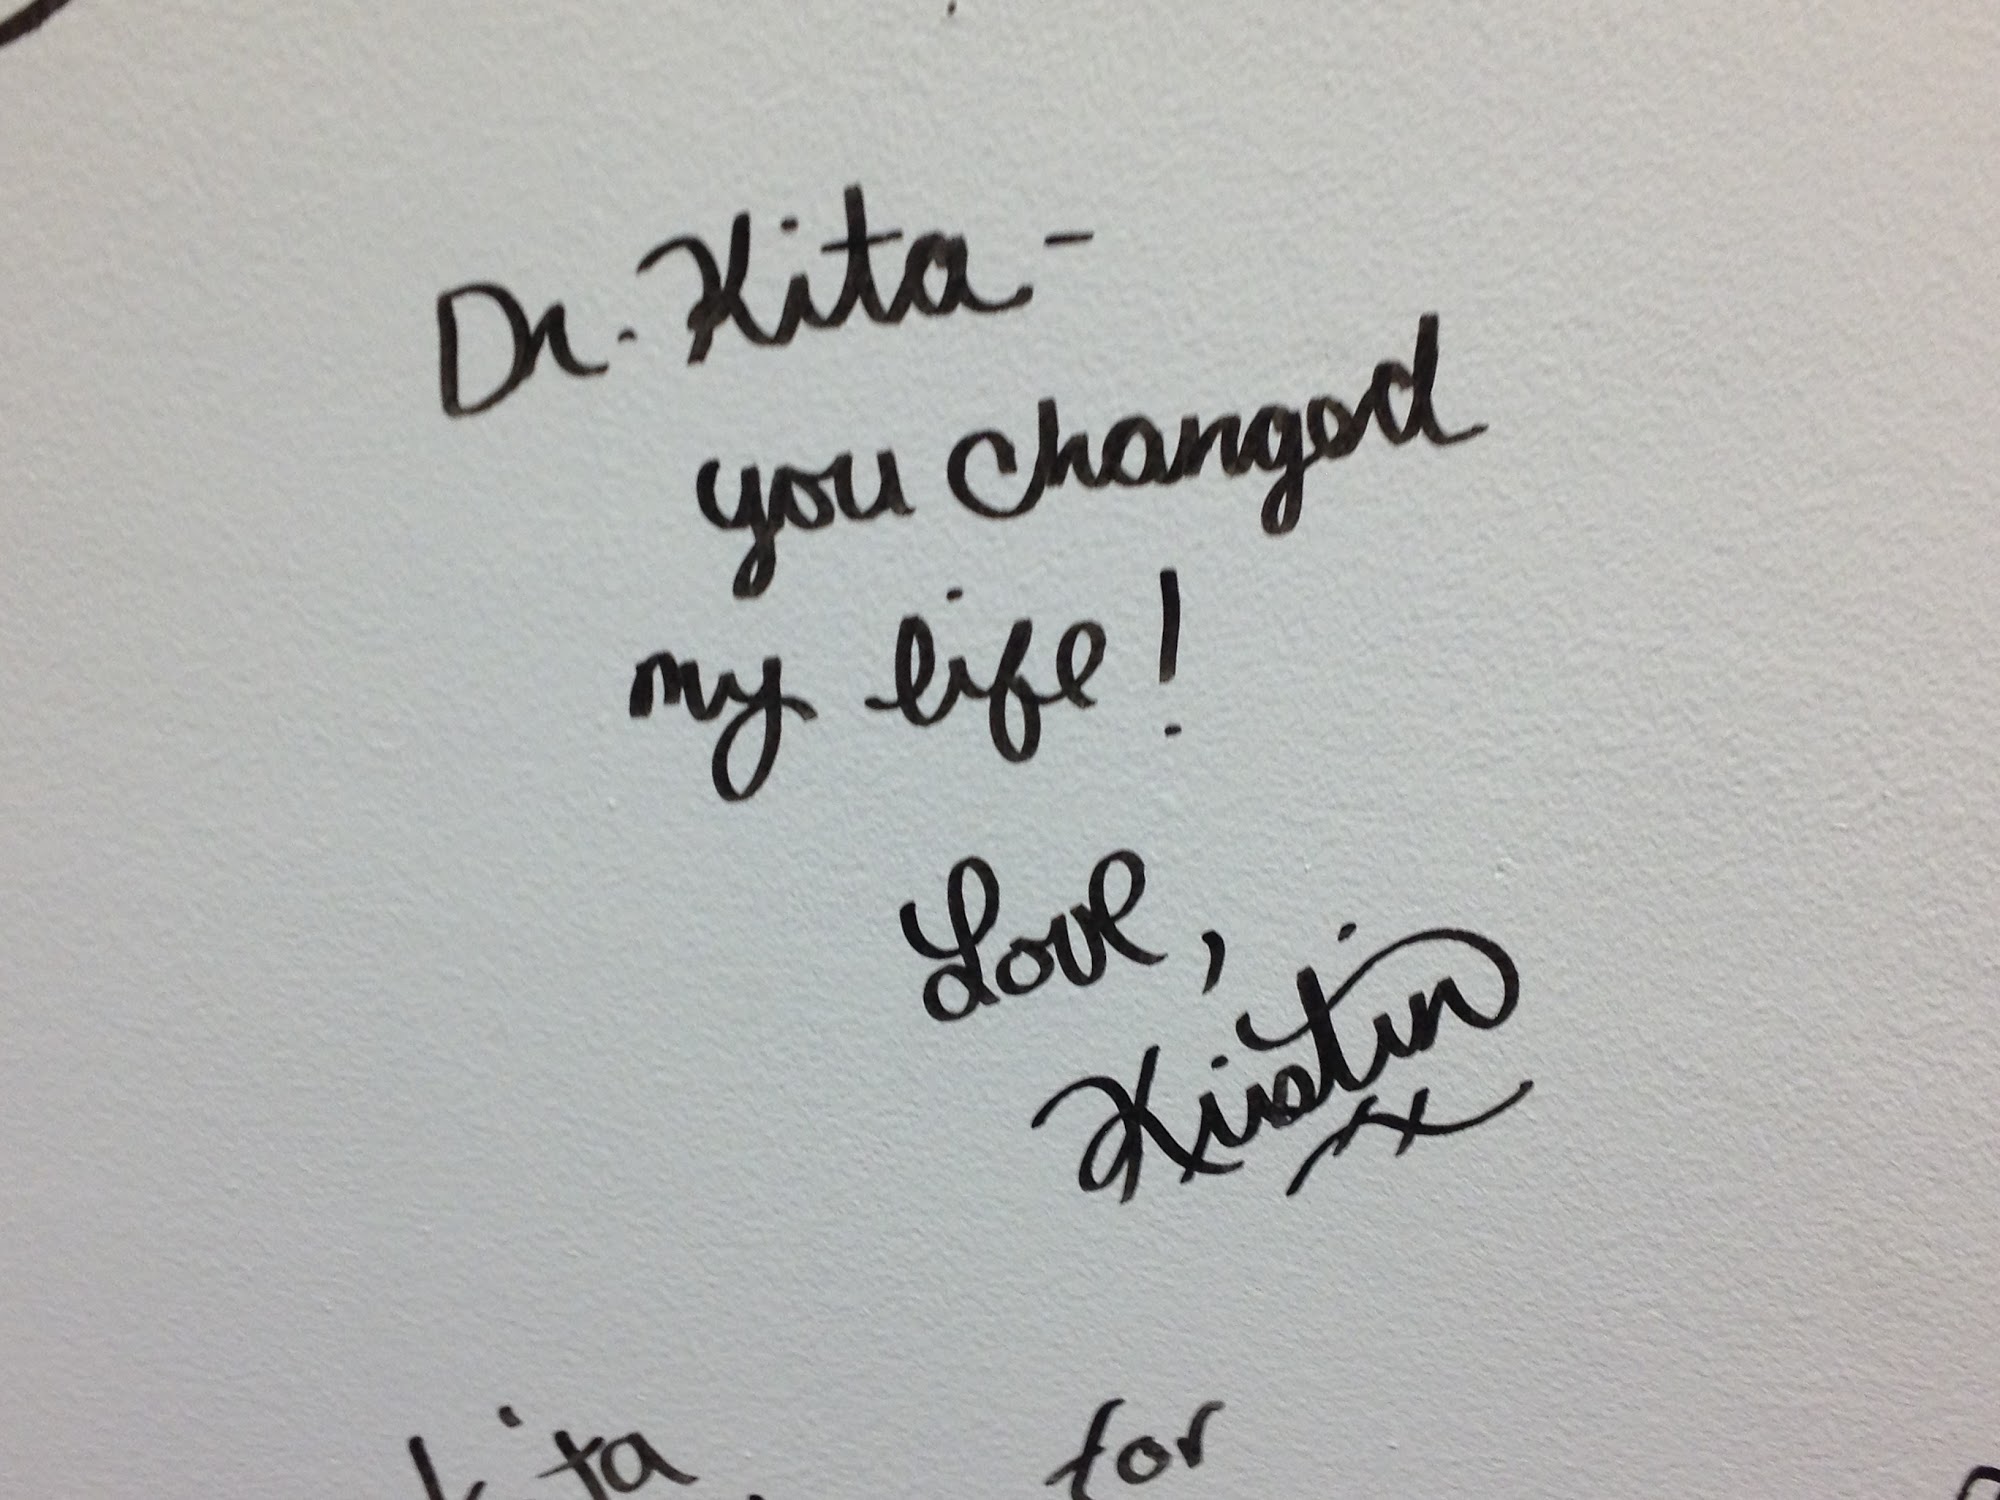 Dr. Kita -
you changed
my life!
Love,
Kirstin
xx
Kita for